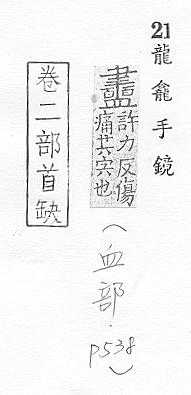 21 龍龕手鏡
衋許力反傷
痛其宍也
(血部.P538)
卷二部首缺